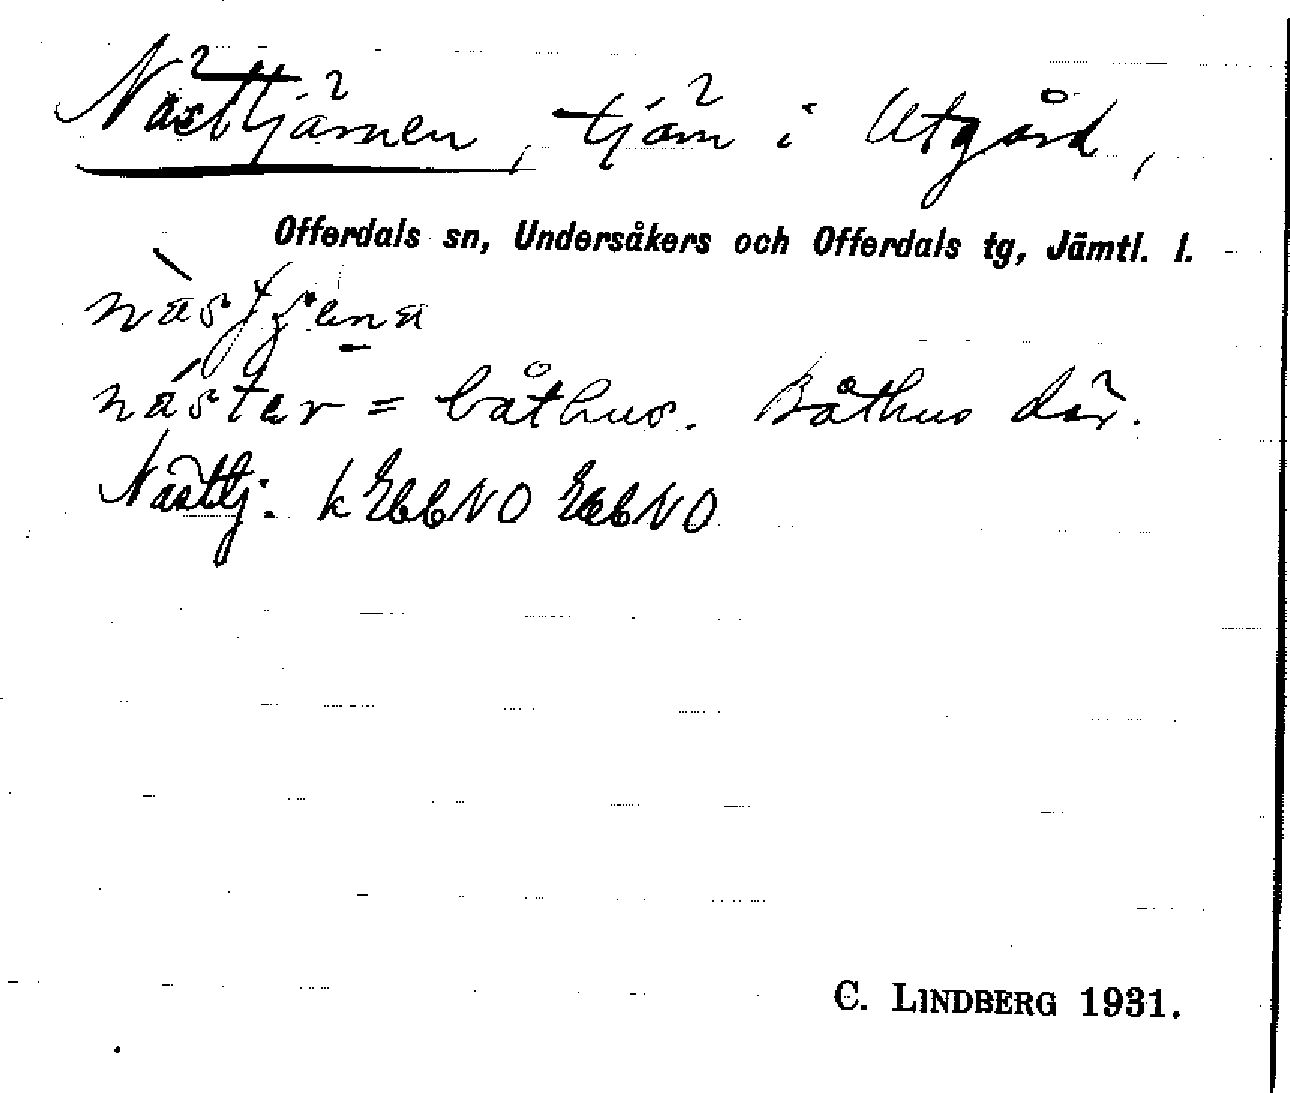 Nästtjärnen, tjärn i Utgård,
Offerdals sn, Undersåkers och Offerdals tg, Jämtl. l.
näster = båthus. Båthus där.
Nästtj. k
C. LINDBERG 1931.